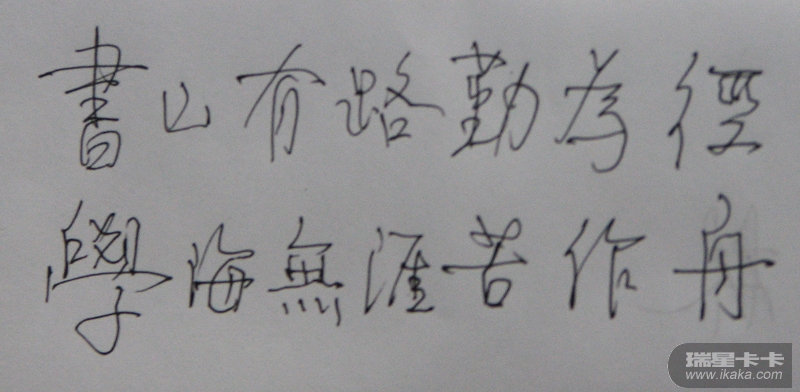 書山有路勤為徑
學海無涯苦作舟
瑞星卡卡
www.ikaka.com